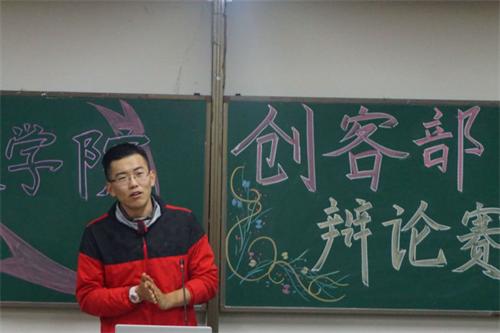 学院
创客部
辩论赛